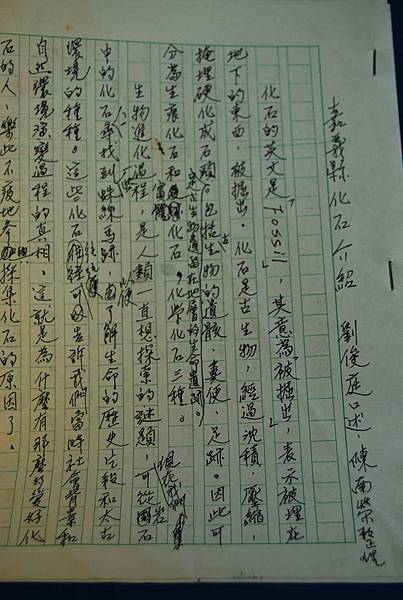 嘉義縣化石介紹 劉俊庭口述，陳南榮整理
化石的英文是「Fossil」，其意為「被掘出」，表示被埋在
地下的東西，被掘出。化石是古生物，經過沈積、壓縮，
掩埋硬化成石頭。包括古生物的遺骸，糞便，足跡。因此可
是古生物遺留在地層的生命遺跡。
分為生痕化石和實體化石，化學化石三種。
生物進化過程，是人類一直想探索的謎題，可從圍岩
中的化石尋找到蛛絲馬跡，以便了解生命的歷史片段和太古
環境的種種。這些化石往往可以告訴我們當時社會背景和
自然環境演變過程的真相。這就是為什麼有那麼多愛好化
石的人，樂此不疲地參與採集化石的原因了。